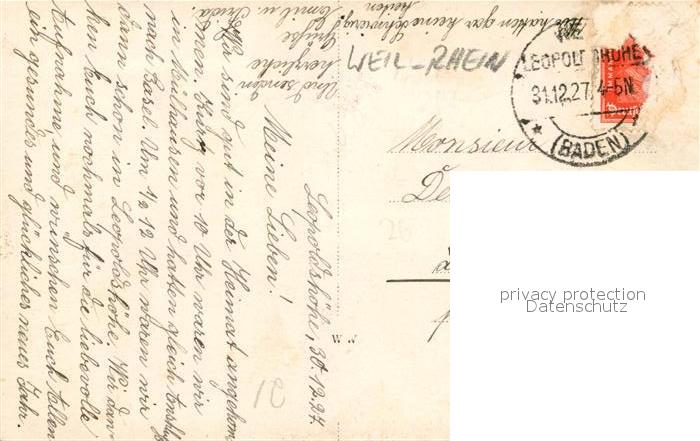 Leopoldshöhe, 30.12.27
Meine Lieben!
Wir sind gut in der Heimat angekom
men. Kurz vor 10 Uhr waren wir
in Mülhausen und hatten gleich Anschluß
nach Basel. Um ½ 12 Uhr waren wir
dann schon in Leopoldshöhe. Wir dan
ken Euch nochmals für die liebevolle
Aufnahme und wünschen Euch Allen
ein gesundes und glückliches neues Jahr.
Und senden
herzliche
Grüße
Emil u.
Wir hatten gar keine Schwierig
keiten
WEIL-RHEIN
LEOPOLDSHÖHE
31.12.27. 4-5N
(BADEN)
Monsieur
De
26
12
W. W.
privacy protection
Datenschutz